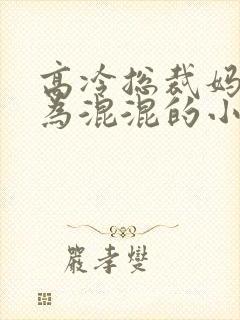 高冷总裁妈
为混混的小
严孝燮